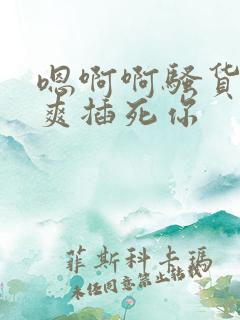 嗯啊啊骚货
爽插死你
菲斯科卡玛
未经同意禁止转载